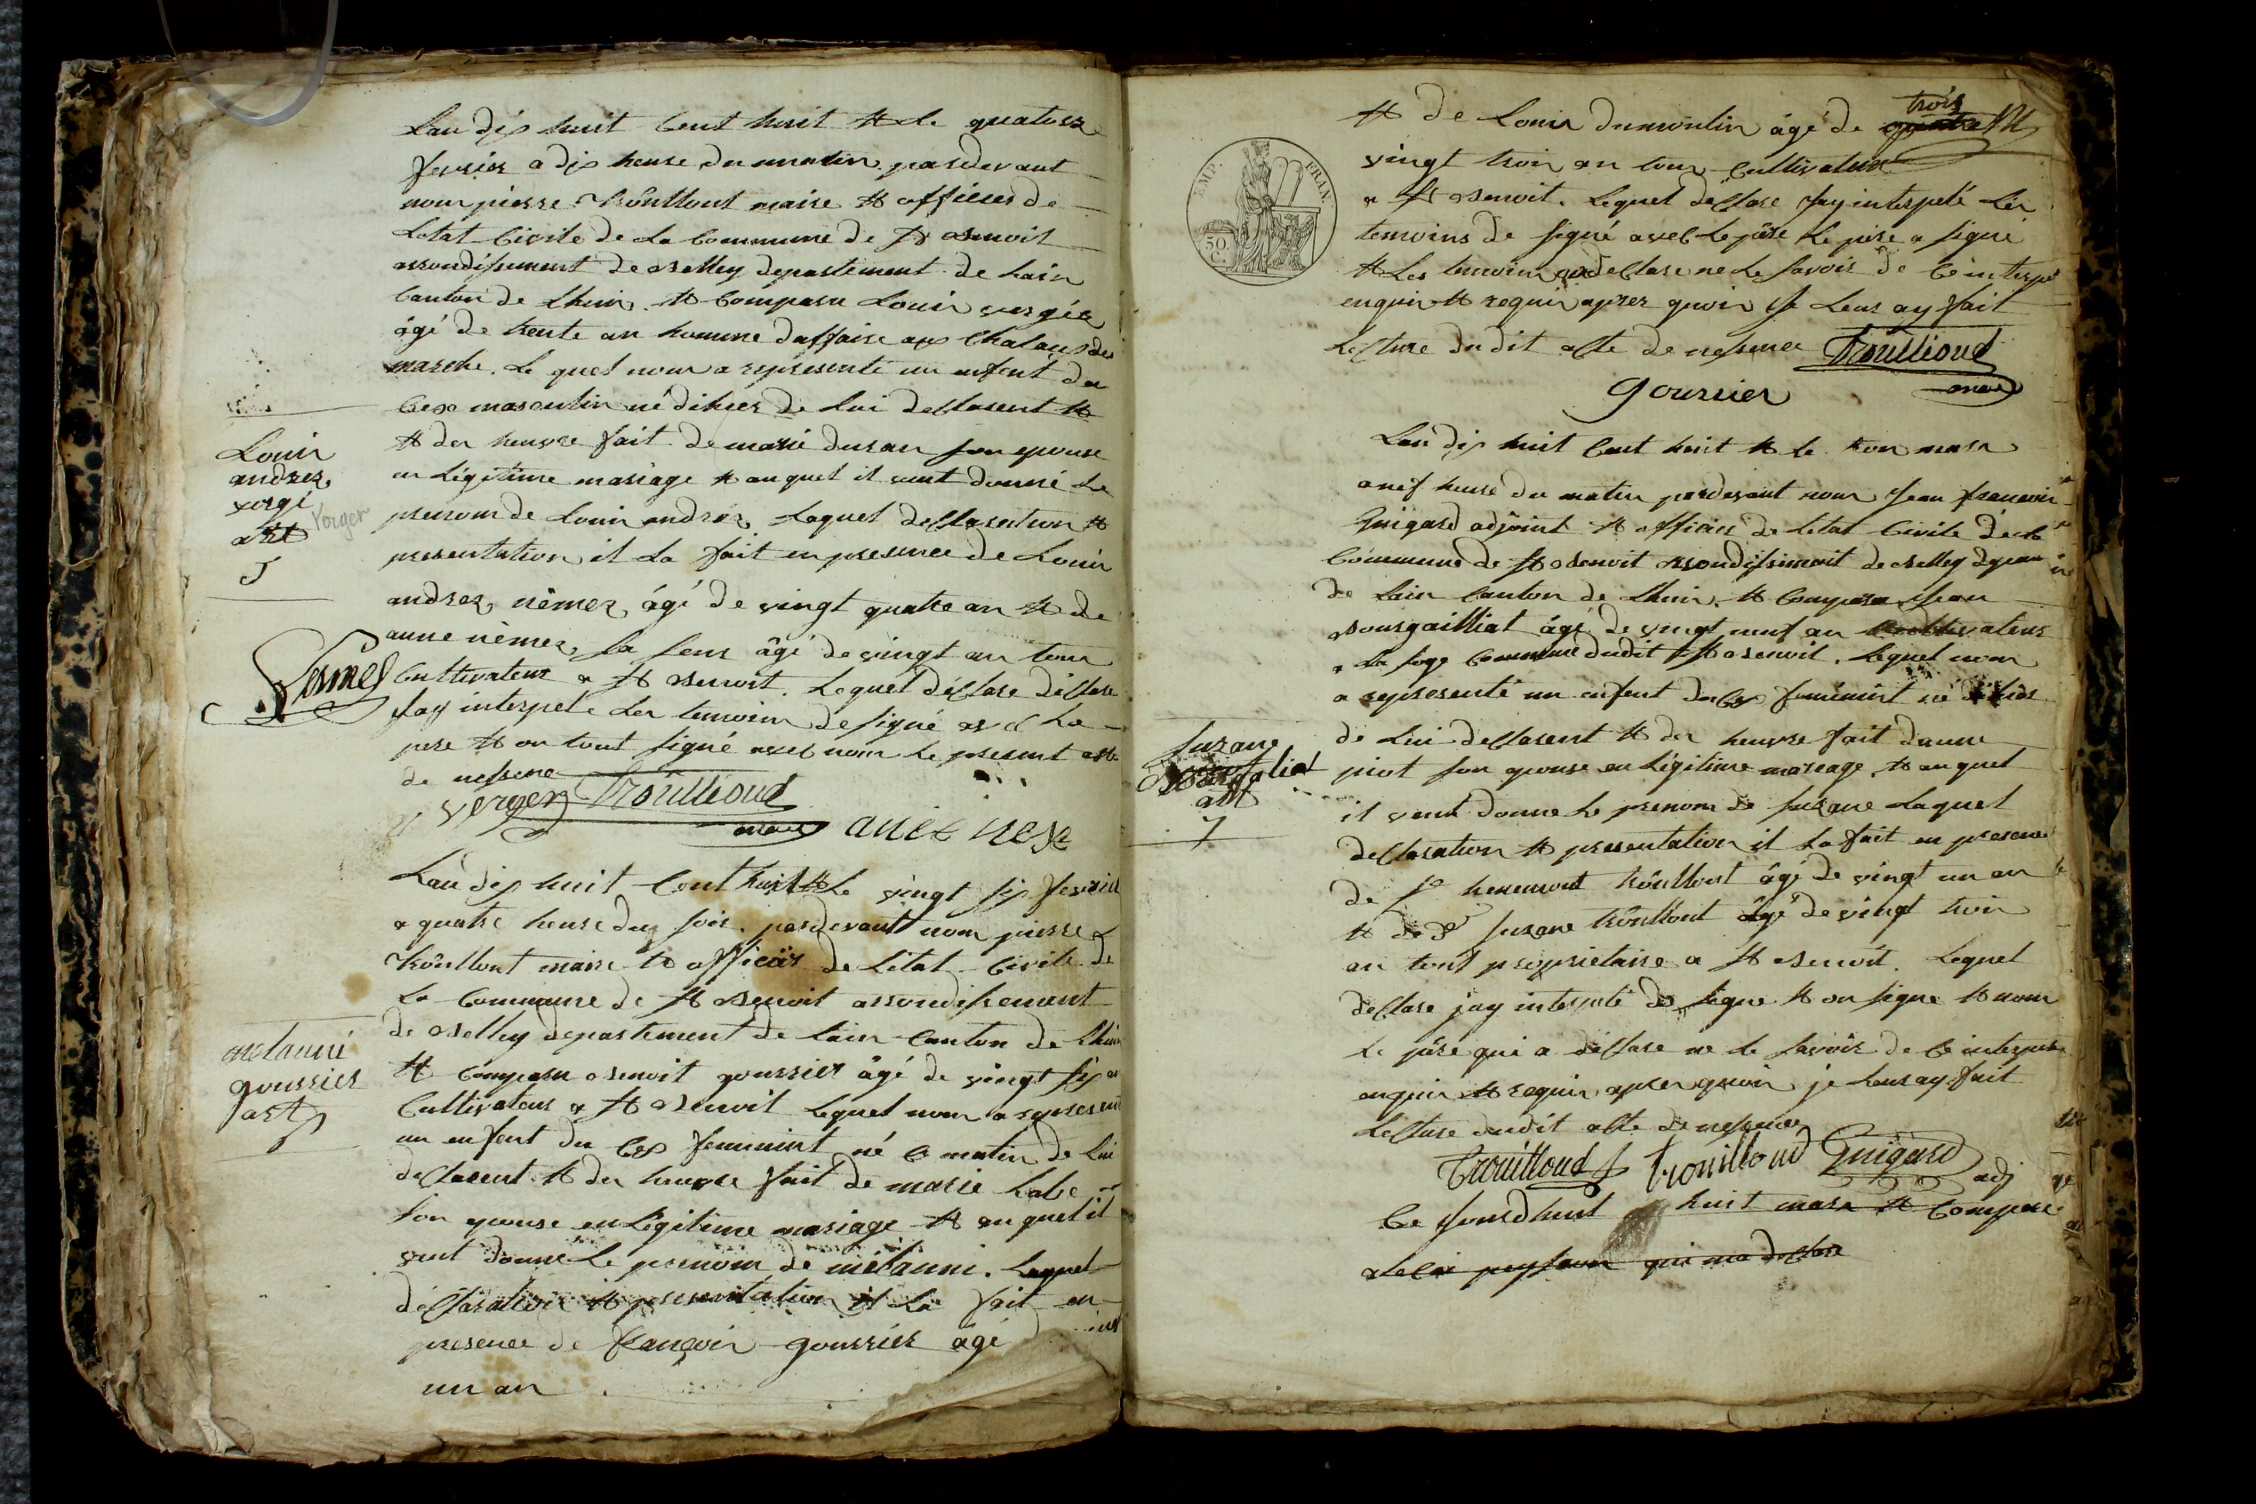 Lan dix huit Cent huit & le quatorze
fevrier a dix heure du matin pardevant
nous pierre Trouilloud maire & officier de
Letat Civile de la Commune de St Benoit
arrondissement de Belley departement de Lain
Canton de Lhuis & Comparu Louis verger
âgé de trente an homme daffaire aux
marche. Le quel nous a représenté un enfent du
sexe masculin né dihier de lui declarent &
& der heuvre fait de marie duran son epouse
en Légitime mariage & auquel il veut donné le
prenom de Louis andrez Laquel declaration &
presentation il la fait en presence de Louis
andrez nêmez âgé de vingt quatre an & de
anne nêmez sa seur âgé de vingt an tous
Cultivateur a St Benoit. Lequel déclare
Jay interpelé Les temoins de signé avec Le
pere & on tout signé avec nous le present acte
de nessence
verger Trouilloud
maire
Louis
andrez
vergé
Verger
5
Lan dix huit Cent huit & Le vingt six fevrier
a quatre heure du soir pardevant nous pierre
Trouilloud maire & officier de Létat Civile de
La Commune de St Benoit arrondissement
de Belley departement de Lain Canton de Lhuis
& Comparu Benoit gourrier âgé de vingt six an
Cultivateur a St Benoit Lequel nous a represent
un enfent du sex feminint né ce matin de Lui
declarent & der heuvre fait de marie
son epouse en Légitime mariage & auquel il
veut donne Le prenom de mélanni. Laquel
déclaration & presentation il La fait en
presence de françois gourrier âgé
un an
melanni
gourrier
& de Louis dumoulin âgé de quatre trois
vingt trois an tous Cultivateur
a St Benoit. Lequel declare Jay interpelé Les
temoins de signé avec Le père Le père a signé
& Les temoins on declare ne le savoir de ce interpe
enquis & requis aprez quoir Je Leur ay fait
Lecture dudit acte de nessence Trouilloud
maire
gourrier
EMP. FRAN.
50
C.
Lan dix huit Cent huit & le trois mars
a neuf heure du matin pardevant nous Jean françois
Guigard adjoint & officier de Létat Civile de la
Commune de St Benoit arrondissement de Belley
de Lain Canton de Lhuis & Comparu Jean
Bourgailliat âgé de vingt neuf an Cultivateur
a la Commune dudit St Benoit. Lequel nous
a representé un enfent du sex feminint né dihier
de Lui declarent & der heuvre fait danne
picot son epouse en Légitime mariage & auquel
il veut donne Le prenom de Suzane Laquel
declaration & presentation il La fait en presence
de Trouilloud âgé de vingt un an
& de Suzane Trouilloud âgé de vingt trois
an tout propriétaire a St Benoit. Lequel
declare jay interpelé de signe & on signe & nous
Le père qui a déclare ne le savoir de ce interpele
enquis & requis aprez quoir je Leur ay fait
Lecture dudit acte de nessence
Trouilloud Trouilloud Guigard adj
Suzane
7
Ce Jourdhuit huit mars & Compare
qui ma declare